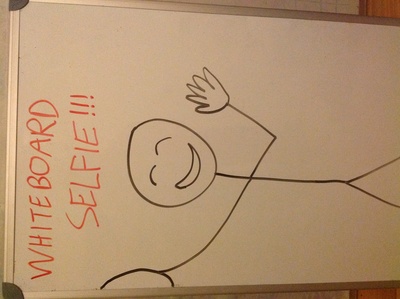 WHITEBOARD
SELFIE!!!